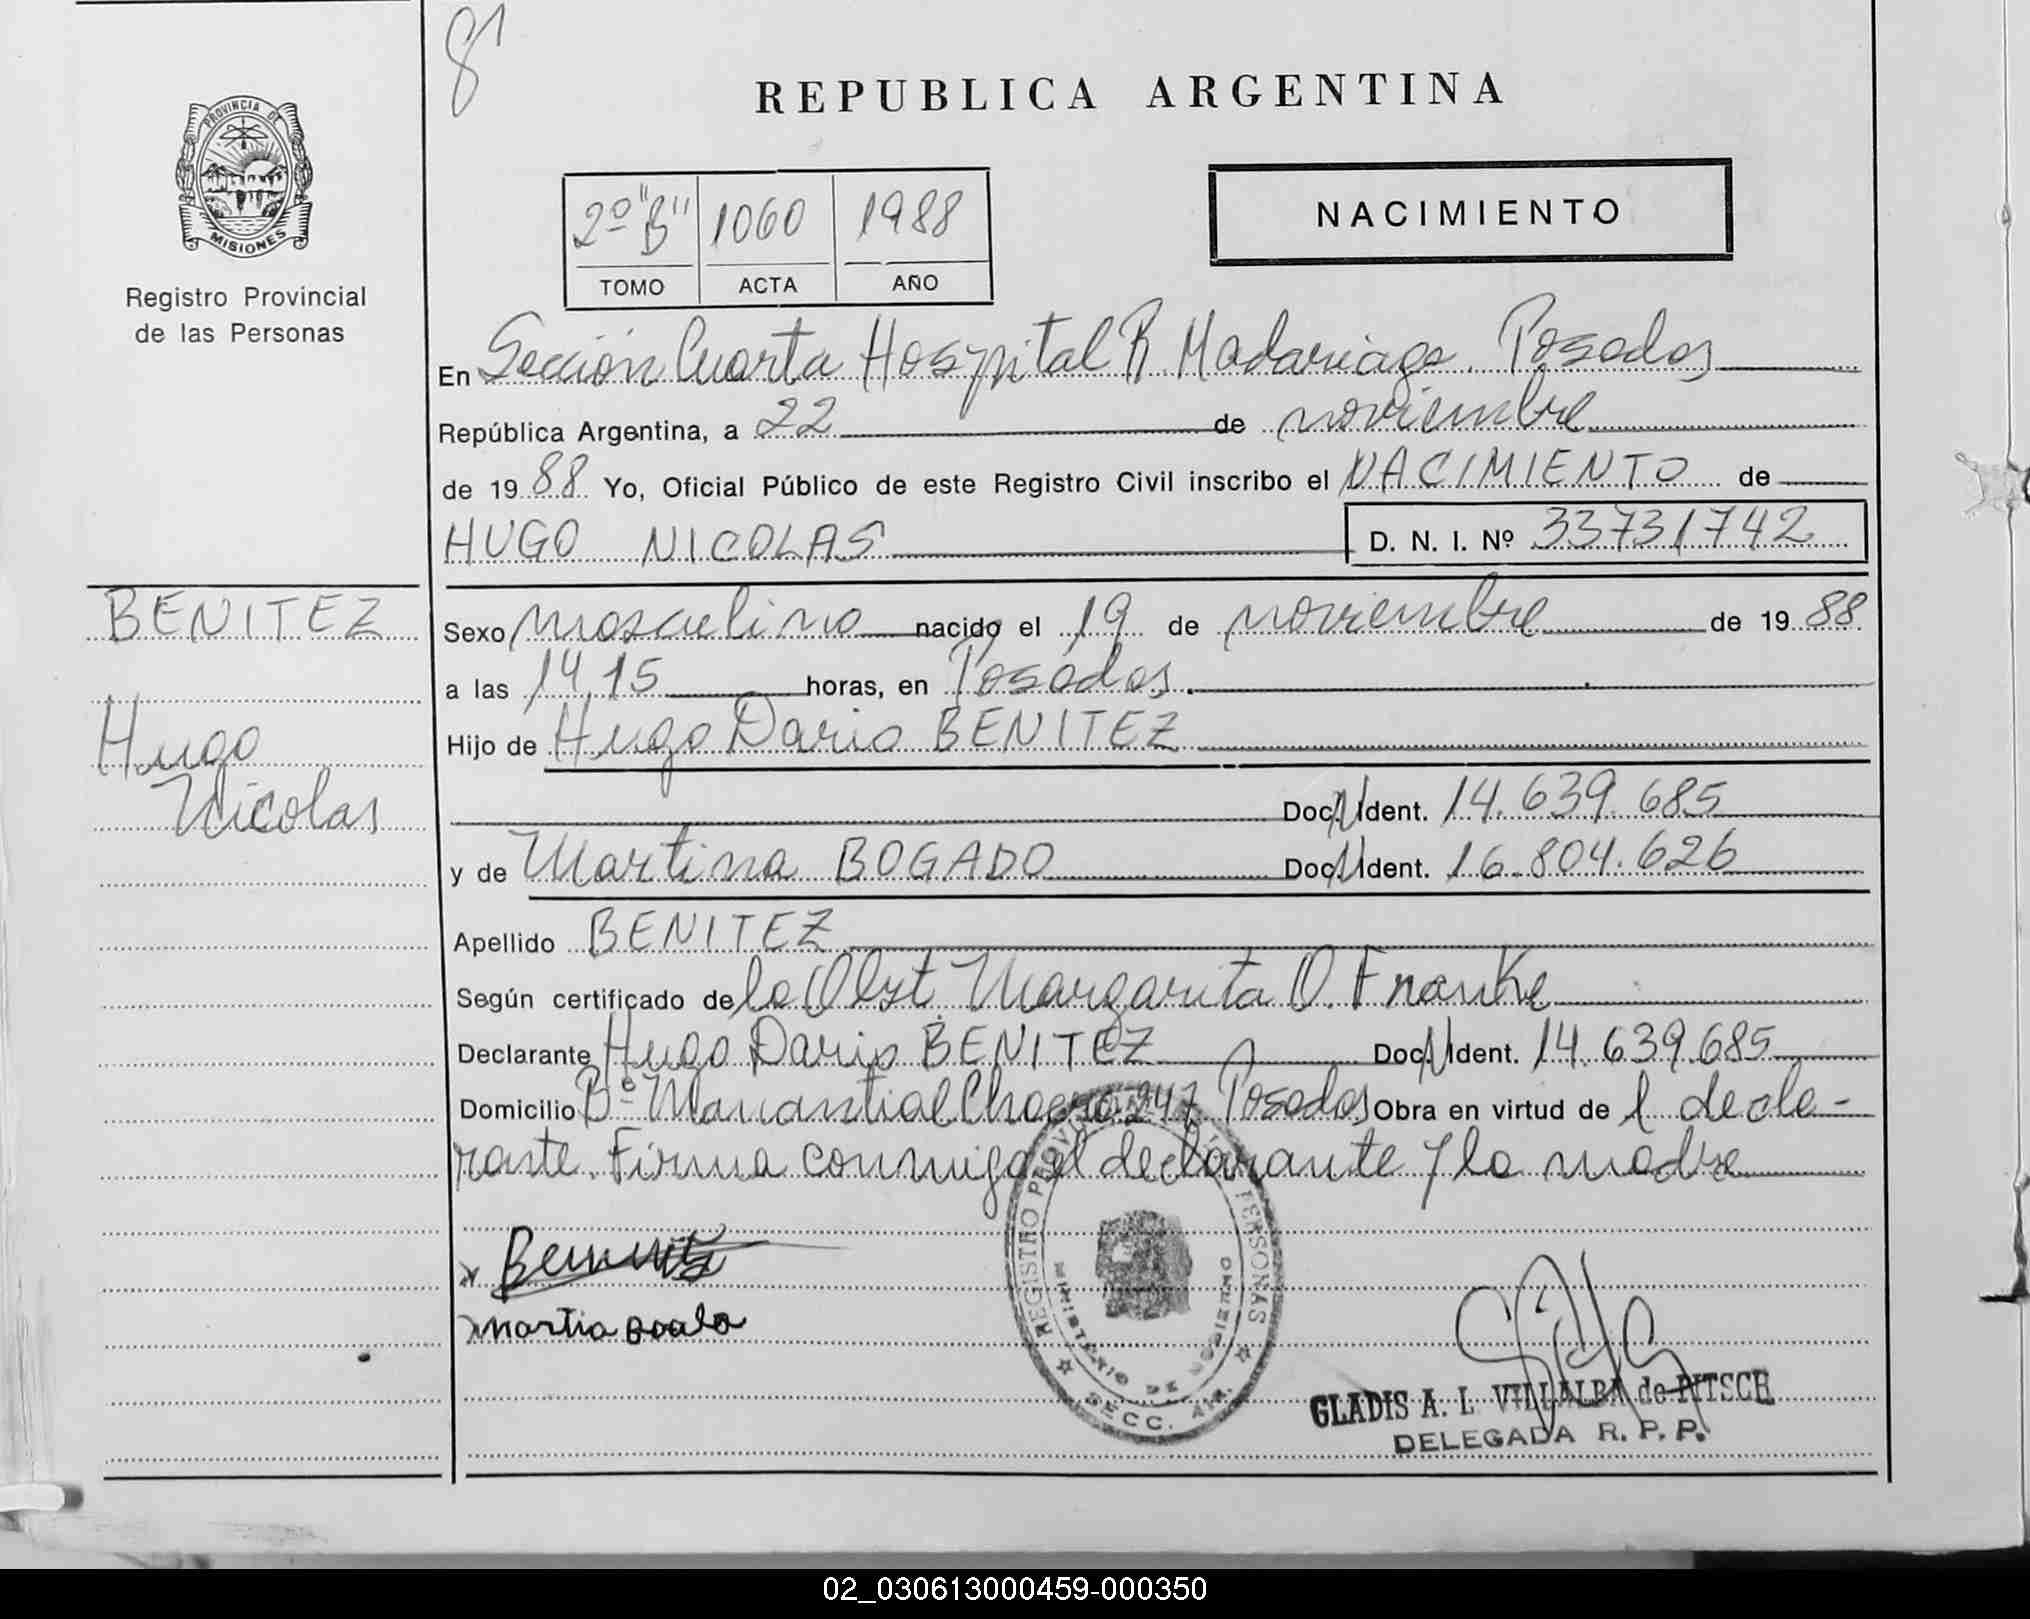 8
REPUBLICA ARGENTINA
PROVINCIA DE
MISIONES
Registro Provincial
de las Personas
2º "B" 1060 1988
TOMO ACTA AÑO
NACIMIENTO
En Sección Cuarta Hospital R. Madariaga. Posadas
República Argentina, a 22 de noviembre
de 1988 Yo, Oficial Público de este Registro Civil inscribo el NACIMIENTO de
HUGO NICOLAS D. N. I. Nº 33731742
BENITEZ
Hugo
Nicolas
Sexo masculino nacido el 19 de noviembre de 1988
a las 14,15 horas, en Posadas.
Hijo de Hugo Dario BENITEZ
Doc. N Ident. 14.639.685
y de Martina BOGADO Doc. N Ident. 16.804.626
Apellido BENITEZ
Según certificado de la Obst. Margarita O. Franke
Declarante Hugo Dario BENITEZ Doc. N Ident. 14.639.685
Domicilio Bº Manantial Chacra 247 Posadas Obra en virtud de l decla-
rante. Firma conmigo el declarante y la madre
Benitez
REGISTRO PROVINCIAL DE LAS PERSONAS
MINISTERIO DE GOBIERNO
SECC. 4ta.
GLADIS A. L. VILLALBA de PITSCH
DELEGADA R. P. P.
02_030613000459-000350